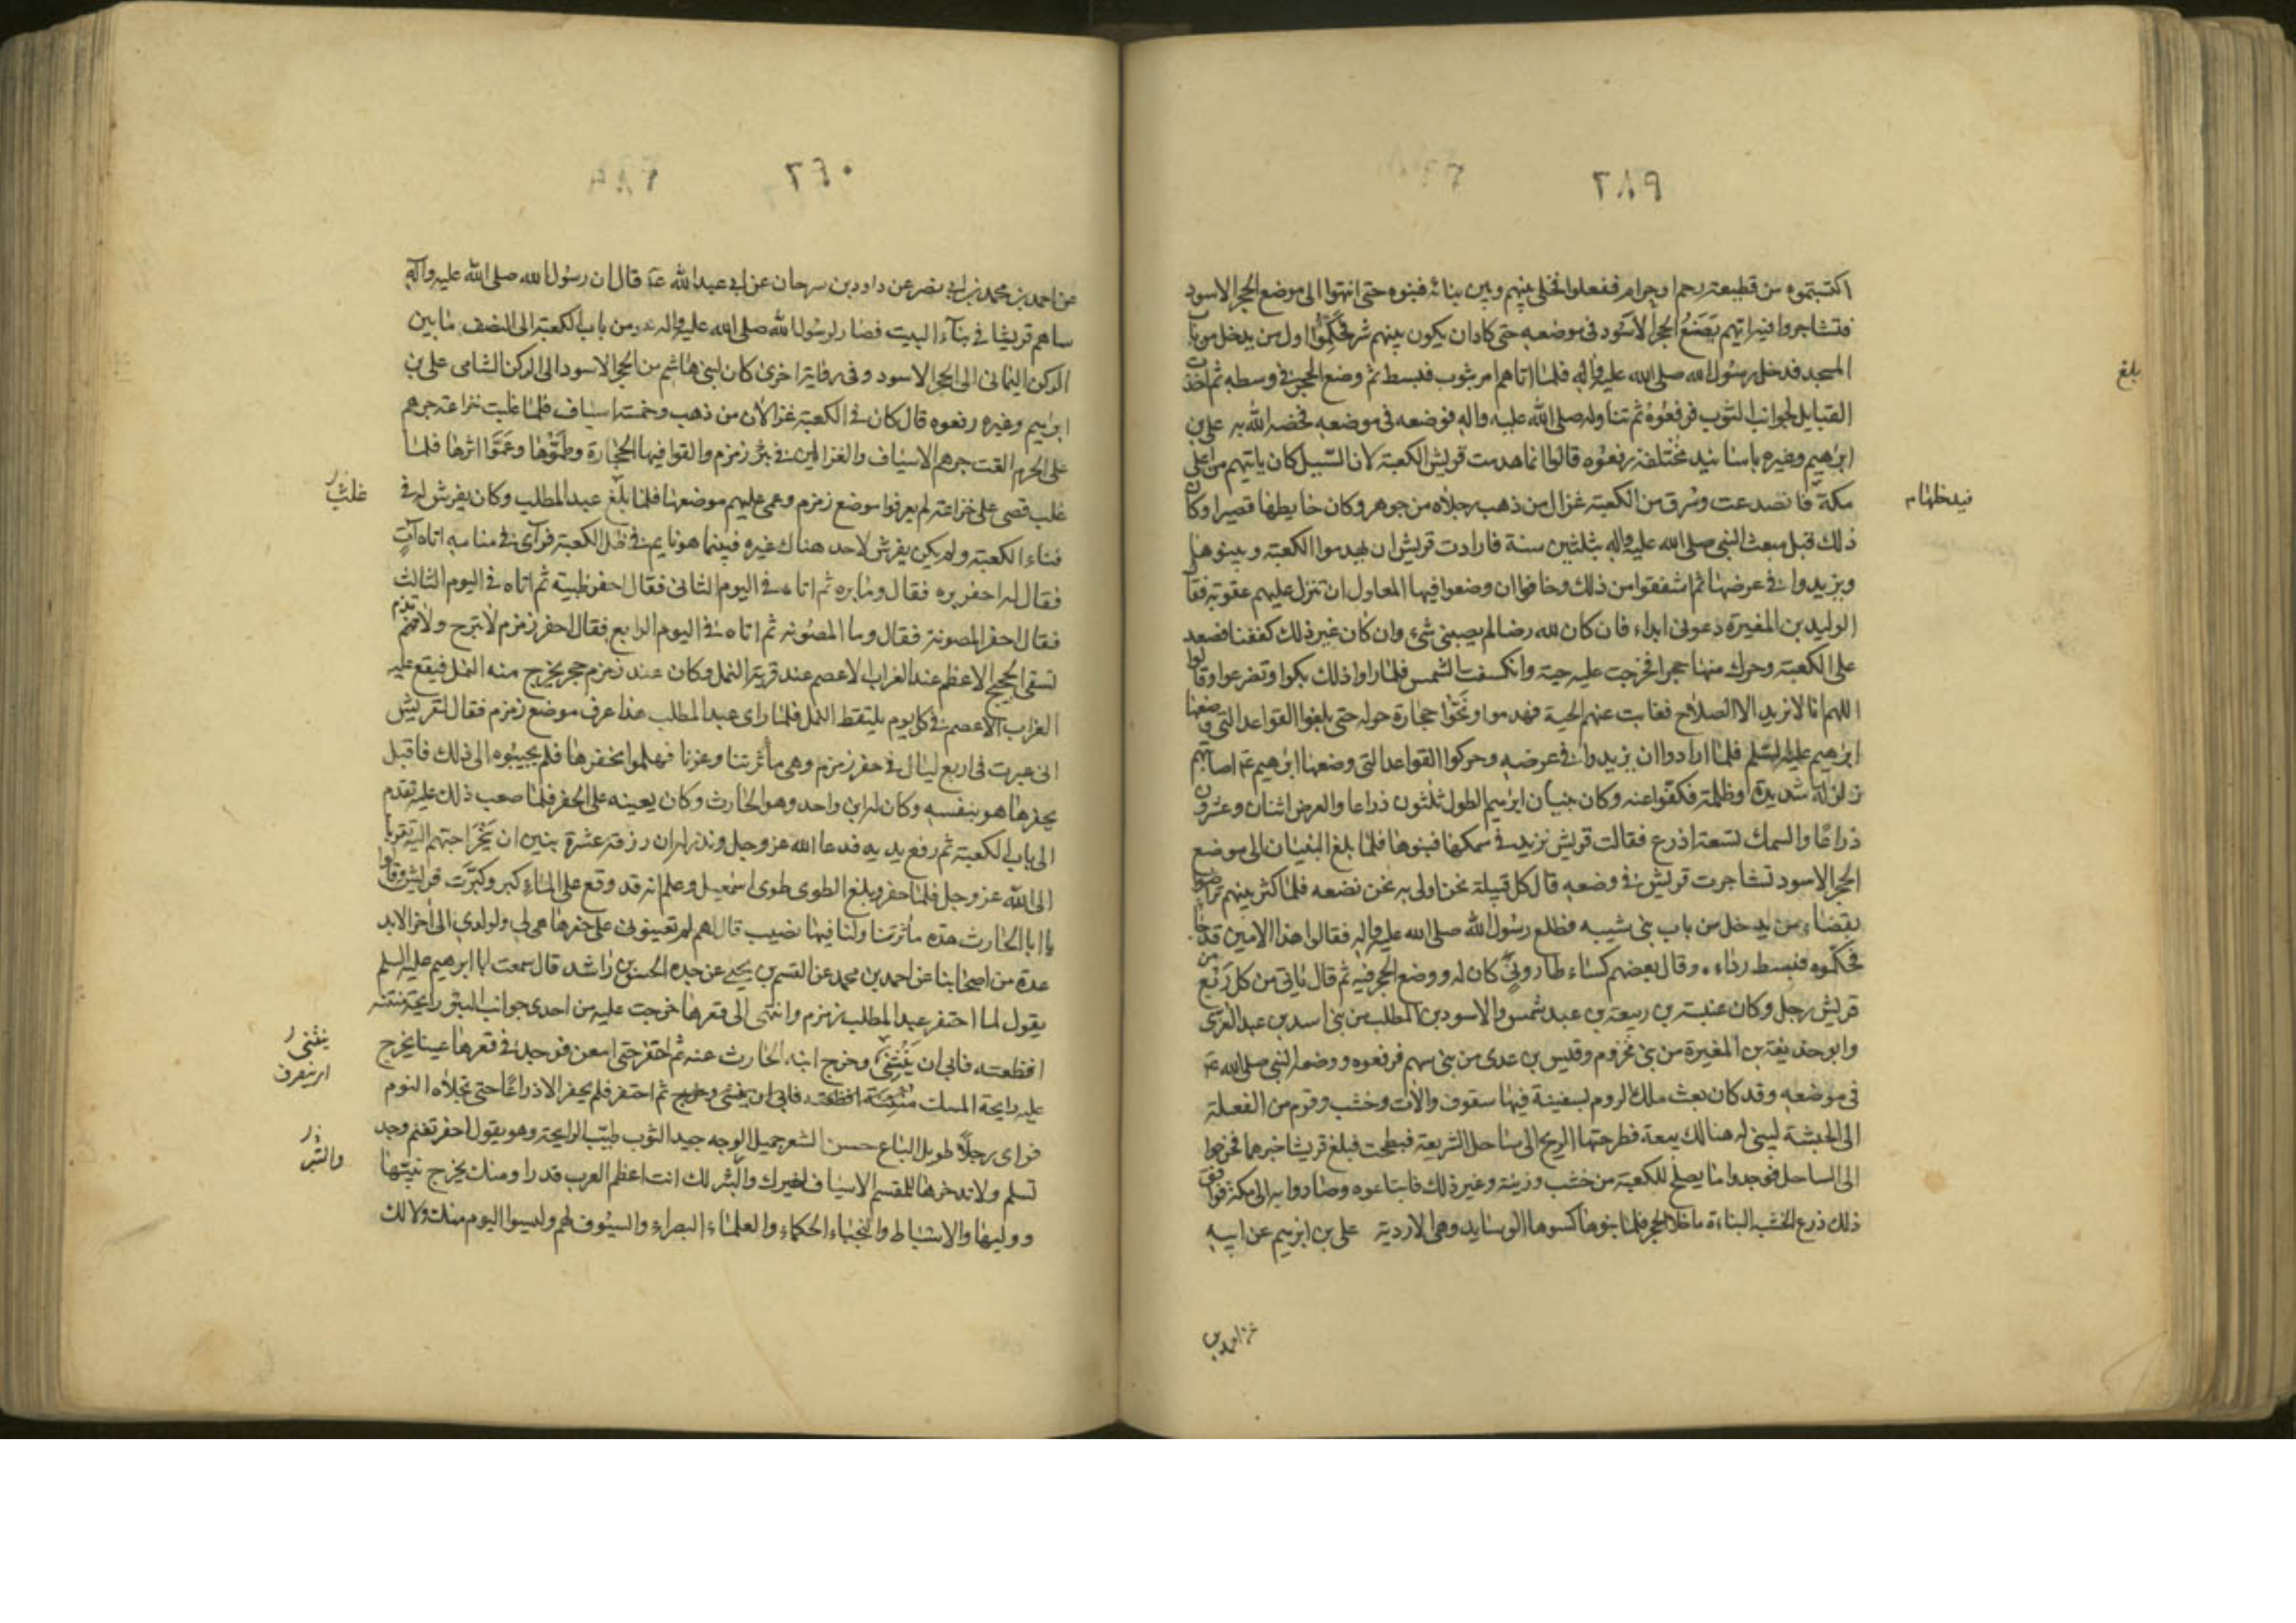 ٢٨٩
اكتسبتموه من قطيعة رحم او حرام ففعلوا فخلى بينهم وبين بنائه فبنوه حتى انتهوا الى موضع الحجر الاسود
فتشاجروا فيه ايهم يضع الحجر الاسود فى موضعه حتى كاد ان يكون بينهم شر فحكموا اول من يدخل من باب
المسجد فدخل رسول الله صلى الله عليه واله فلما اتاهم امر بثوب فبسط ثم وضع الحجر فى وسطه ثم اخذت
القبايل بجوانب الثوب فرفعوه ثم تناوله صلى الله عليه واله فوضعه فى موضعه فخصه الله به على بن
ابرهيم وغيره باسانيد مختلفة رفعوه قالوا انما هدمت قريش الكعبة لان السيل كان ياتيهم من اعلى
مكة فانصدعت وسرق من الكعبة غزال من ذهب رجلاه من جوهر وكان حايطها قصيرا وكان
ذلك قبل مبعث النبى صلى الله عليه واله بثلثين سنة فارادت قريش ان يهدموا الكعبة ويبنوها
ويزيدوا فى عرضها ثم اشفقوا من ذلك وخافوا ان وضعوا فيها المعاول ان تنزل عليهم عقوبة فقال
الوليد بن المغيرة دعونى ابداء فان كان لله رضا لم يصبنى شئ وان كان غير ذلك كففنا فصعد
على الكعبة وحرك منها حجرا فخرجت عليه حية وانكسفت الشمس فلما راوا ذلك بكوا وتضرعوا وقالوا
اللهم انا لا نريد الا الصلاح فغابت عنهم الحية فهدموا ونحوا حجارة حوله حتى بلغوا القواعد التى وضعها
ابرهيم عليه السلم فلما ارادوا ان يزيدوا فى عرضه وحركوا القواعد التى وضعها ابرهيم ع اصابتهم
زلزلة شديدة وظلمة فكفوا عنه وكان بنيان ابرهيم الطول ثلثون ذراعا والعرض اثنان وعشرون
ذراعا والسمك تسعة اذرع فقالت قريش نزيد فى سمكها فبنوها فلما بلغ البنيان الى موضع
الحجر الاسود تشاجرت قريش فى وضعه قال كل قبيلة نحن اولى به نحن نضعه فلما كثر بينهم تراضوا
بقضاء من يدخل من باب بنى شيبه فطلع رسول الله صلى الله عليه واله فقالوا هذا الامين قد جاء
فحكموه فبسط رداءه وقال بعضهم كساء طارونى كان له ووضع الحجر فيه ثم قال ياتى من كل ربع من
قريش رجل وكان عتبة بن ربيعة بن عبد شمس والاسود بن المطلب من بنى اسد بن عبد العزى
وابو حذيفة بن المغيرة من بنى مخزوم وقيس بن عدى من بنى سهم فرفعوه ووضعه النبى صلى الله ع
فى موضعه وقد كان بعث ملك الروم بسفينة فيها سقوف والات وخشب وقوم من الفعلة
الى الحبشة ليبنى له هنالك بيعة فطرحتها الريح الى ساحل الشريعة فبطحت فبلغ قريشا خبرها فخرجوا
الى الساحل فوجدوا ما يصلح للكعبة من خشب وزينة وغير ذلك فابتاعوه وصاروا به الى مكة فوافق
ذلك ذرع الخشب البناءة ما خلا الحجر فلما بنوها كسوها الوسايد وهى الاردية على بن ابرهيم عن ابيه
بلغ
فيدخلها م
عن احمد بن
٢٤٠
عن احمد بن محمد بن ابى نصر عن داود بن سرحان عن ابى عبد الله ع قال ان رسول الله صلى الله عليه واله
ساهم قريشا فى بناء البيت فصار لرسول الله صلى الله عليه واله من باب الكعبة الى النصف ما بين
الركن اليمانى الى الحجر الاسود وفى رواية اخرى كان لبنى هاشم من الحجر الاسود الى الركن الشامى على بن
ابرهيم وغيره رفعوه قال كان فى الكعبة غزالان من ذهب وخمسة اسياف فلما غلبت خزاعة جرهم
على الحرم القت جرهم الاسياف والغزالين فى بئر زمزم والقوا فيها الحجارة وطموها وعموا اثرها فلما
غلب قصى على خزاعة لم يعرفوا موضع زمزم وعمى عليهم موضعها فلما بلغ عبد المطلب وكان يفرش له فى
فناء الكعبة ولم يكن يفرش لاحد هناك غيره فبينما هو نايم فى ظل الكعبة فراى فى منامه اتاه آت
فقال له احفر بره فقال وما بره ثم اتاه فى اليوم الثانى فقال احفر طيبه ثم اتاه فى اليوم الثالث
فقال احفر المصونة فقال وما المصونه ثم اتاه فى اليوم الرابع فقال احفر زمزم لا تبرح ولا تذم
تسقى الحجيج الاعظم عند الغراب الاعصم عند قرية النمل وكان عند زمزم حجر يخرج منه النمل فيقع عليه
الغراب الاعصم فى كل يوم يلتقط النمل فلما راى عبد المطلب هذا عرف موضع زمزم فقال لقريش
انى عبرت فى اربع ليال فى حفر زمزم وهى مأثرتنا وعزنا فهلموا نحفرها فلم يجيبوه الى ذلك فاقبل
يحفرها هو بنفسه وكان له ابن واحد وهو الحارث وكان يعينه على الحفر فلما صعب ذلك عليه تقدم
الى باب الكعبة ثم رفع يديه فدعا الله عز وجل ونذر له ان رزقه عشرة بنين ان ينحر احبهم اليه تقربا
الى الله عز وجل فلما حفر وبلغ الطوى طوى اسمعيل وعلم انه قد وقع على الماء كبر وكبرت قريش وقالوا
يا ابا الحارث هذه مأثرتنا ولنا فيها نصيب قال لهم لم تعينونى على حفرها هى لى ولولدى الى آخر الابد
عدة من اصحابنا عن احمد بن محمد عن القسم بن يحيى عن جده الحسن بن راشد قال سمعت ابا ابرهيم عليه السلم
يقول لما احتفر عبد المطلب زمزم وانتهى الى قعرها خرجت عليه من احدى جوانب البئر رايحة منتنه
افظعته فابى ان ينثنى وخرج ابنه الحارث عنه ثم احتفر حتى امعن فوجد فى قعرها عينا يخرج
عليه رايحة المسك ثم احتفر فلم يحفر الا ذراعا حتى تجلاه النوم
فراى رجلا طويل الباع حسن الشعر جميل الوجه جيد الثوب طيب الرايحة وهو يقول احفر تغنم وجد
تسلم ولا تدخرها للمقسم الاسياف لغيرك والبئر لك انت اعظم العرب قدرا ومنك يخرج نبيها
ووليها والاسباط والنجباء الحكماء والعلماء البصراء والسيوف لهم وليسوا اليوم منك ولا لك
غلبت
ينثنى
والتبر